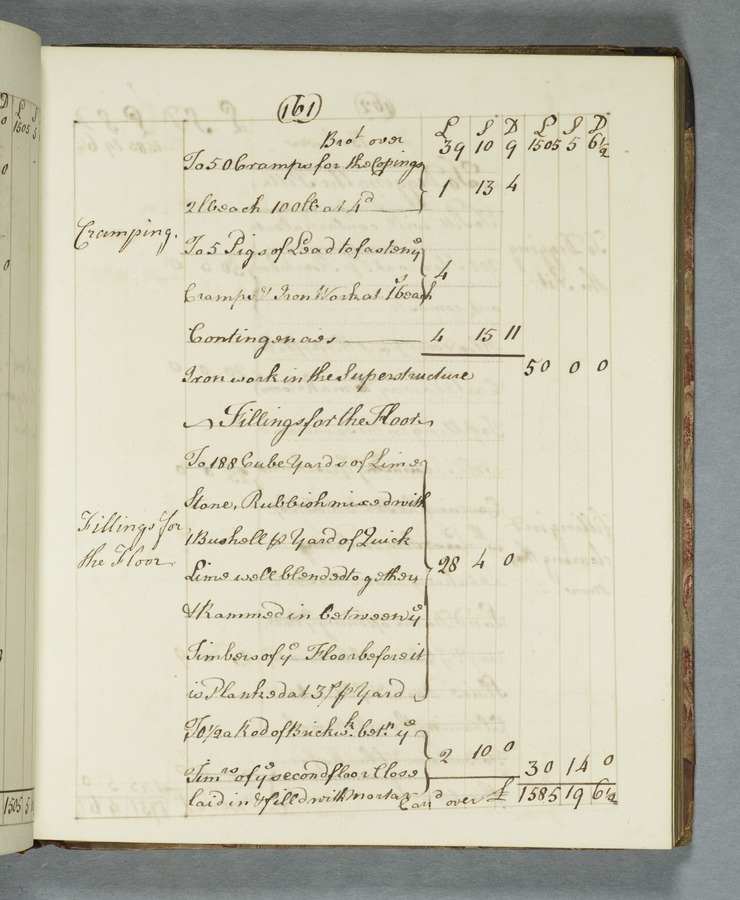 161
£ S D £ S D
Bro.t over 39 10 9 1505 5 6½
To 50 Cramps for the Copings
2 lb each 100 lb at 4d 1 13 4
Cramping.
To 5 Pigs of Lead to fasten ye
Cramps & Iron Work at 16s each 4
Contingencies 4 15 11
Iron work in the Superstructure 50 0 0
Fillings for the Floor
To 188 Cube Yards of Lime
Stone, Rubbish mixed with
Fillings for
the Floor
1 Bushell P Yard of Quick
Lime well blended together 28 4 0
& Rammed in between ye
Timbers of ye Floor before it
is Planked at 3s P Yard
To ½ a Rod of Brickwk. betn. ye
2 10 0
Timrs of ye second floor Close 30 14 0
laid in & filld with Mortar Card over £ 1585 19 6½
1505 5